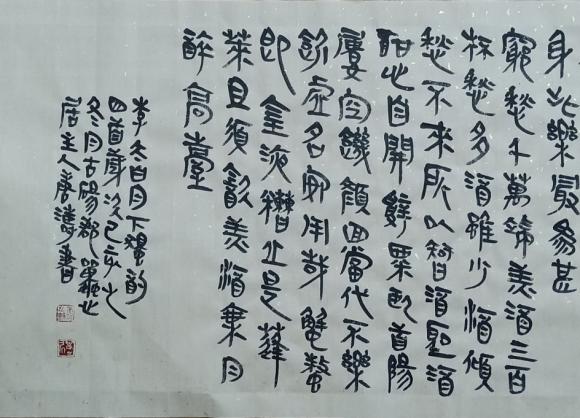 身此樂最為甚
窮愁千萬端美酒三百
杯愁多酒雖少酒傾
愁不來所以智酒聖酒
酣心自開辭粟臥首陽
屢空饑顏回當代不樂
飲虛名安用哉蟹螯
即金液糟丘是蓬
萊且須飲美酒乘月
醉高臺
李太白月下獨酌
四首歲次己亥之
冬月古
居主人唐濤書